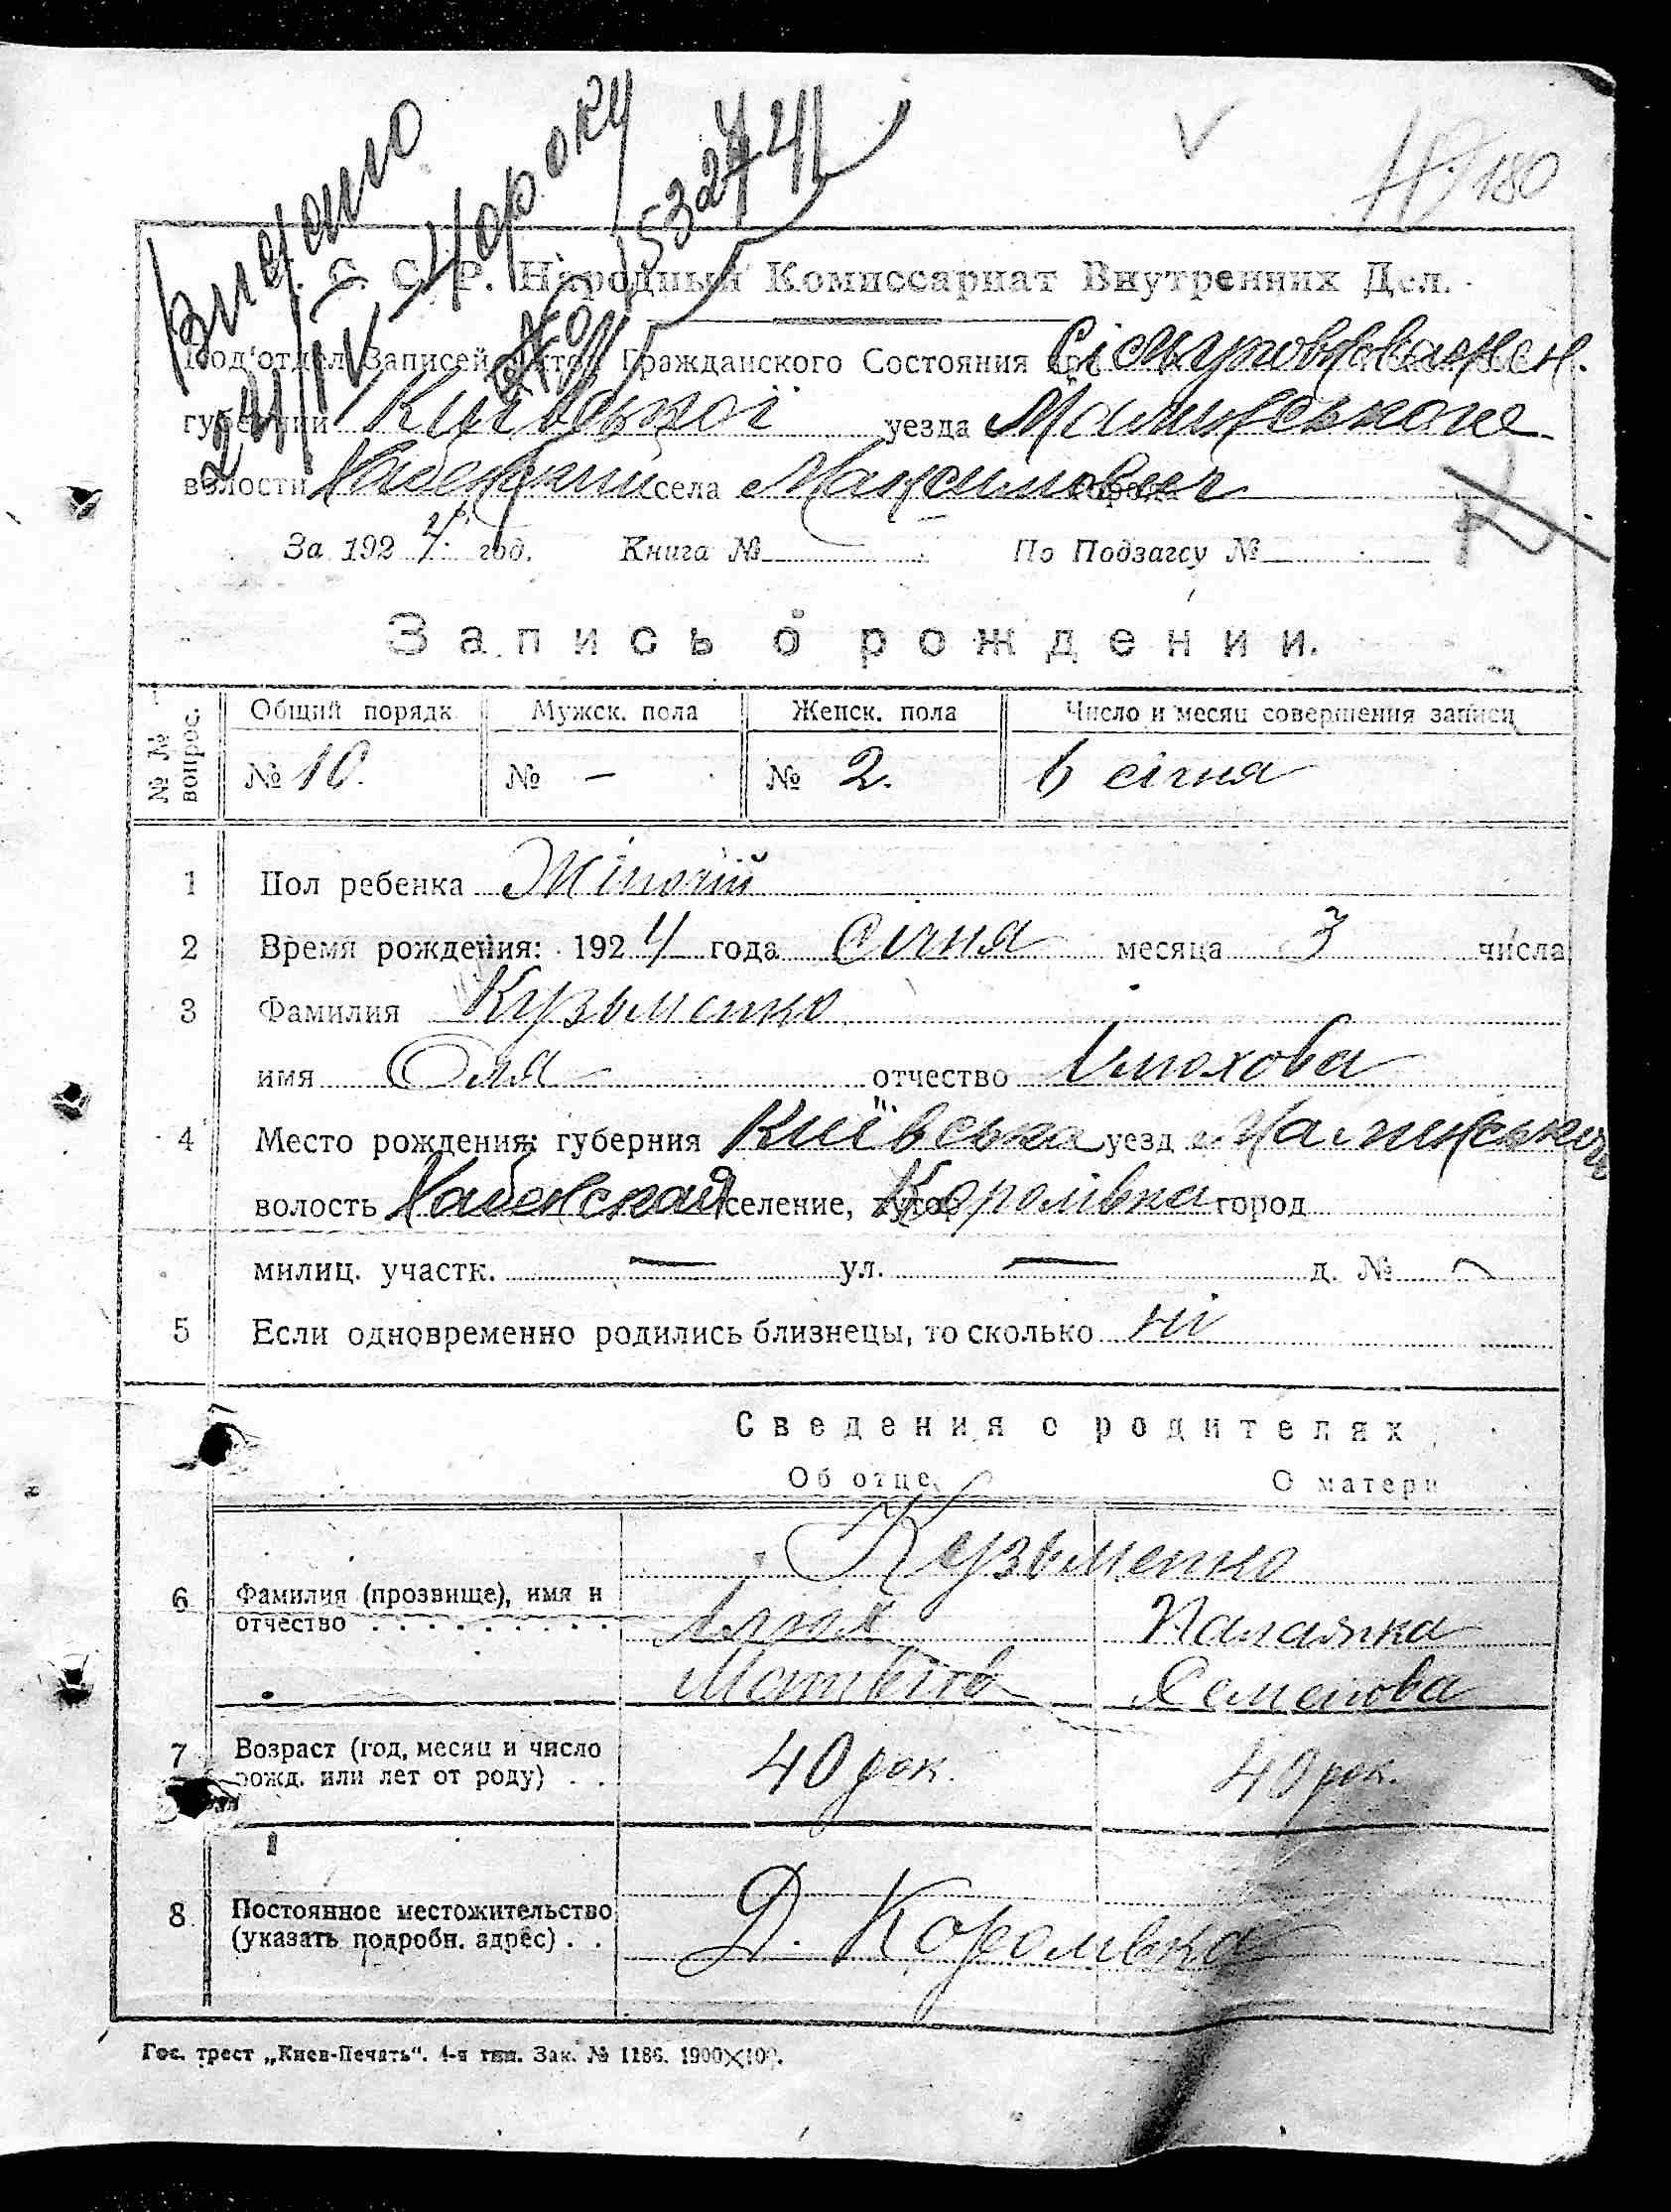 180
Видано
24/IV 41 року
532741
С. С. Р. Народный Комиссариат Внутренних Дел.
Под'отдел Записей Актов Гражданского Состояния при
губернии Київської уезда Малинського
волости села Максимович
За 1924 год. Книга № По Подзагсу №
Запись о рождении.
№ № вопрос. Общий порядк. Мужск. пола Женск. пола Число и месяц совершения записи
№ 10. № — № 2. 6 січня
1 Пол ребенка Жіночій
2 Время рождения: 1924 года Січня месяца 3 числа
3 Фамилия Кузьменко
имя Оля отчество
4 Место рождения: губерния Київська уезд Малинського
волость Хабенская селение, хутор Королівка город
милиц. участк. — ул. — д. № —
5 Если одновременно родились близнецы, то сколько ні
Сведения о родителях
Об отце. О матери
Кузьменко
6 Фамилия (прозвище), имя и
отчество . . . . . . . . . Палажка
Матвієв Семенова
7 Возраст (год, месяц и число
рожд. или лет от роду) . . 40 рок. 40 рок.
8 Постоянное местожительство
(указать подробн. адрес) . . Д. Королівка
Гос. трест „Киев-Печать“. 4-я тип. Зак. № 1186. 1900×100.